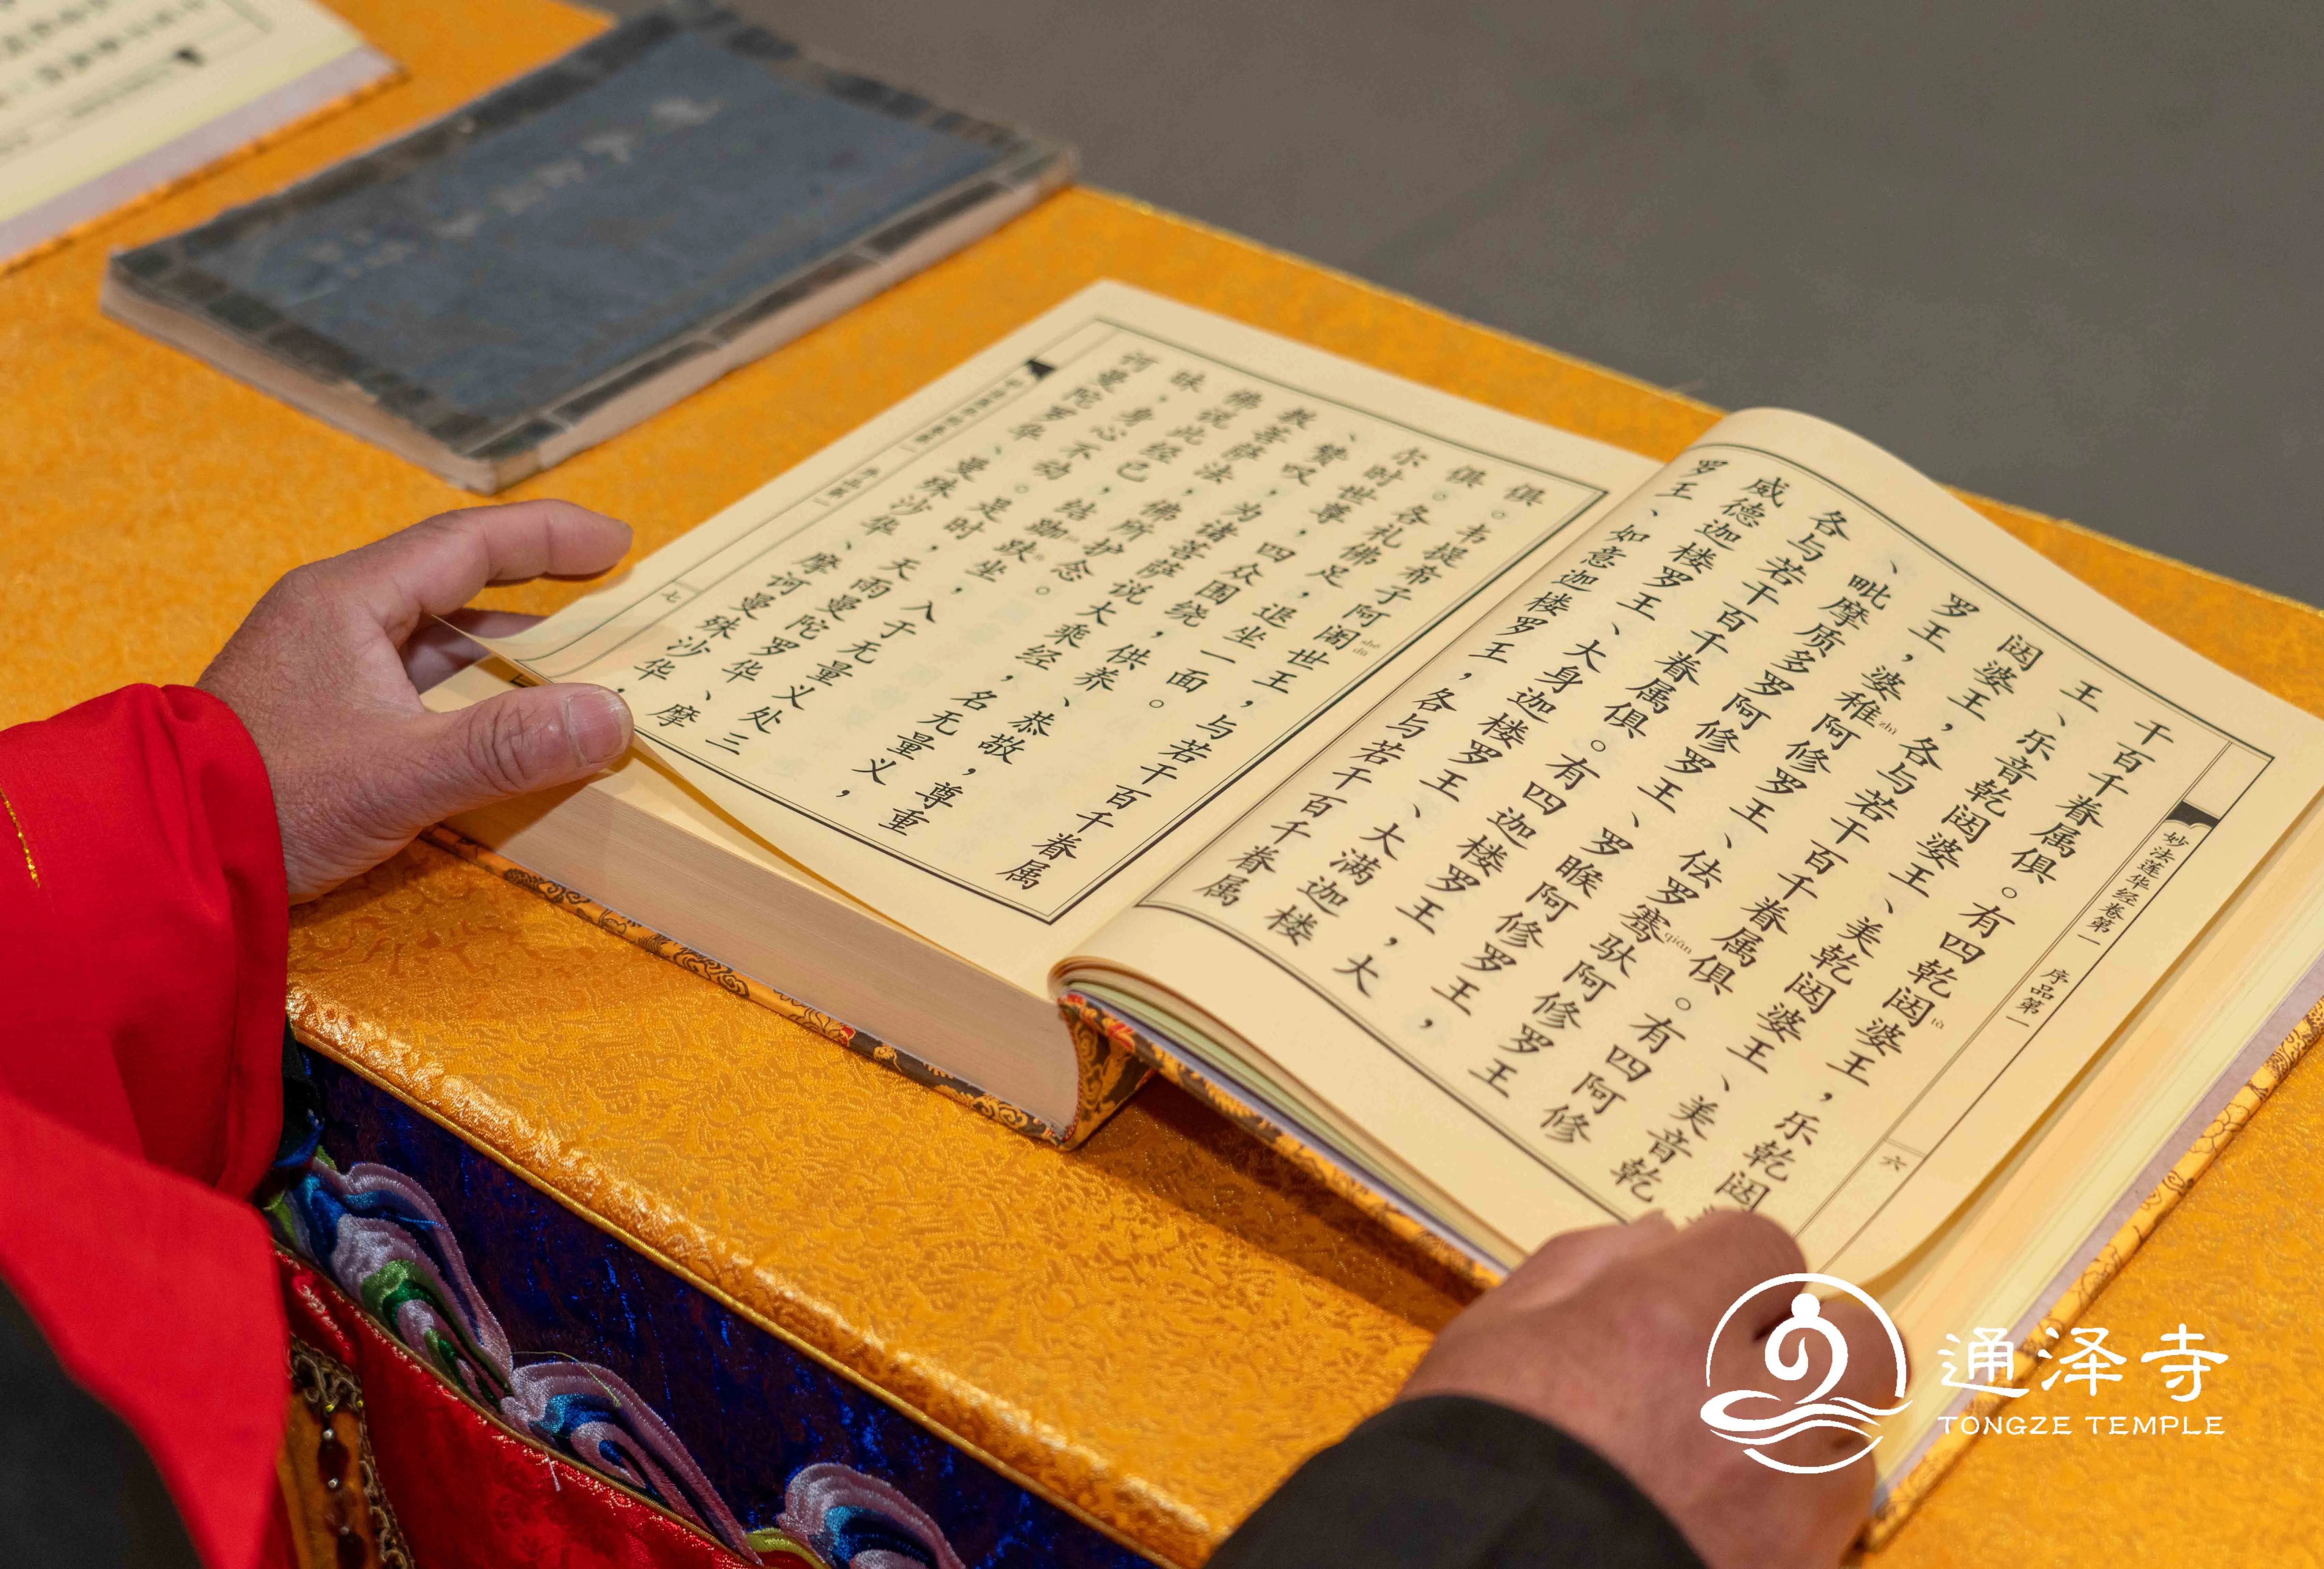 妙法莲华经卷第一 序品第一 六
干百千眷属俱。有四乾闼婆王,乐乾闼
王、乐音乾闼婆王、美乾闼婆王、美音乾
闼婆王,各与若干百千眷属俱。有四阿修
罗王,婆稚阿修罗王、佉罗骞驮阿修罗王
、毗摩质多罗阿修罗王、罗睺阿修罗王,
各与若干百千眷属俱。有四迦楼罗王,大
威德迦楼罗王、大身迦楼罗王、大满迦楼
罗王、如意迦楼罗王,各与若干百千眷属
俱。韦提希子阿阇世王,与若干百千眷属
俱。各礼佛足,退坐一面。
尔时世尊,四众围绕,供养、恭敬,尊重
、赞叹,为诸菩萨说大乘经,名无量义,
教菩萨法,佛所护念。
佛说此经已,结跏趺坐,入于无量义处三
昧,身心不动。是时,天雨曼陀罗华、摩
诃曼陀罗华、曼殊沙华、摩诃曼殊沙华,
七
通泽寺
TONGZE TEMPLE